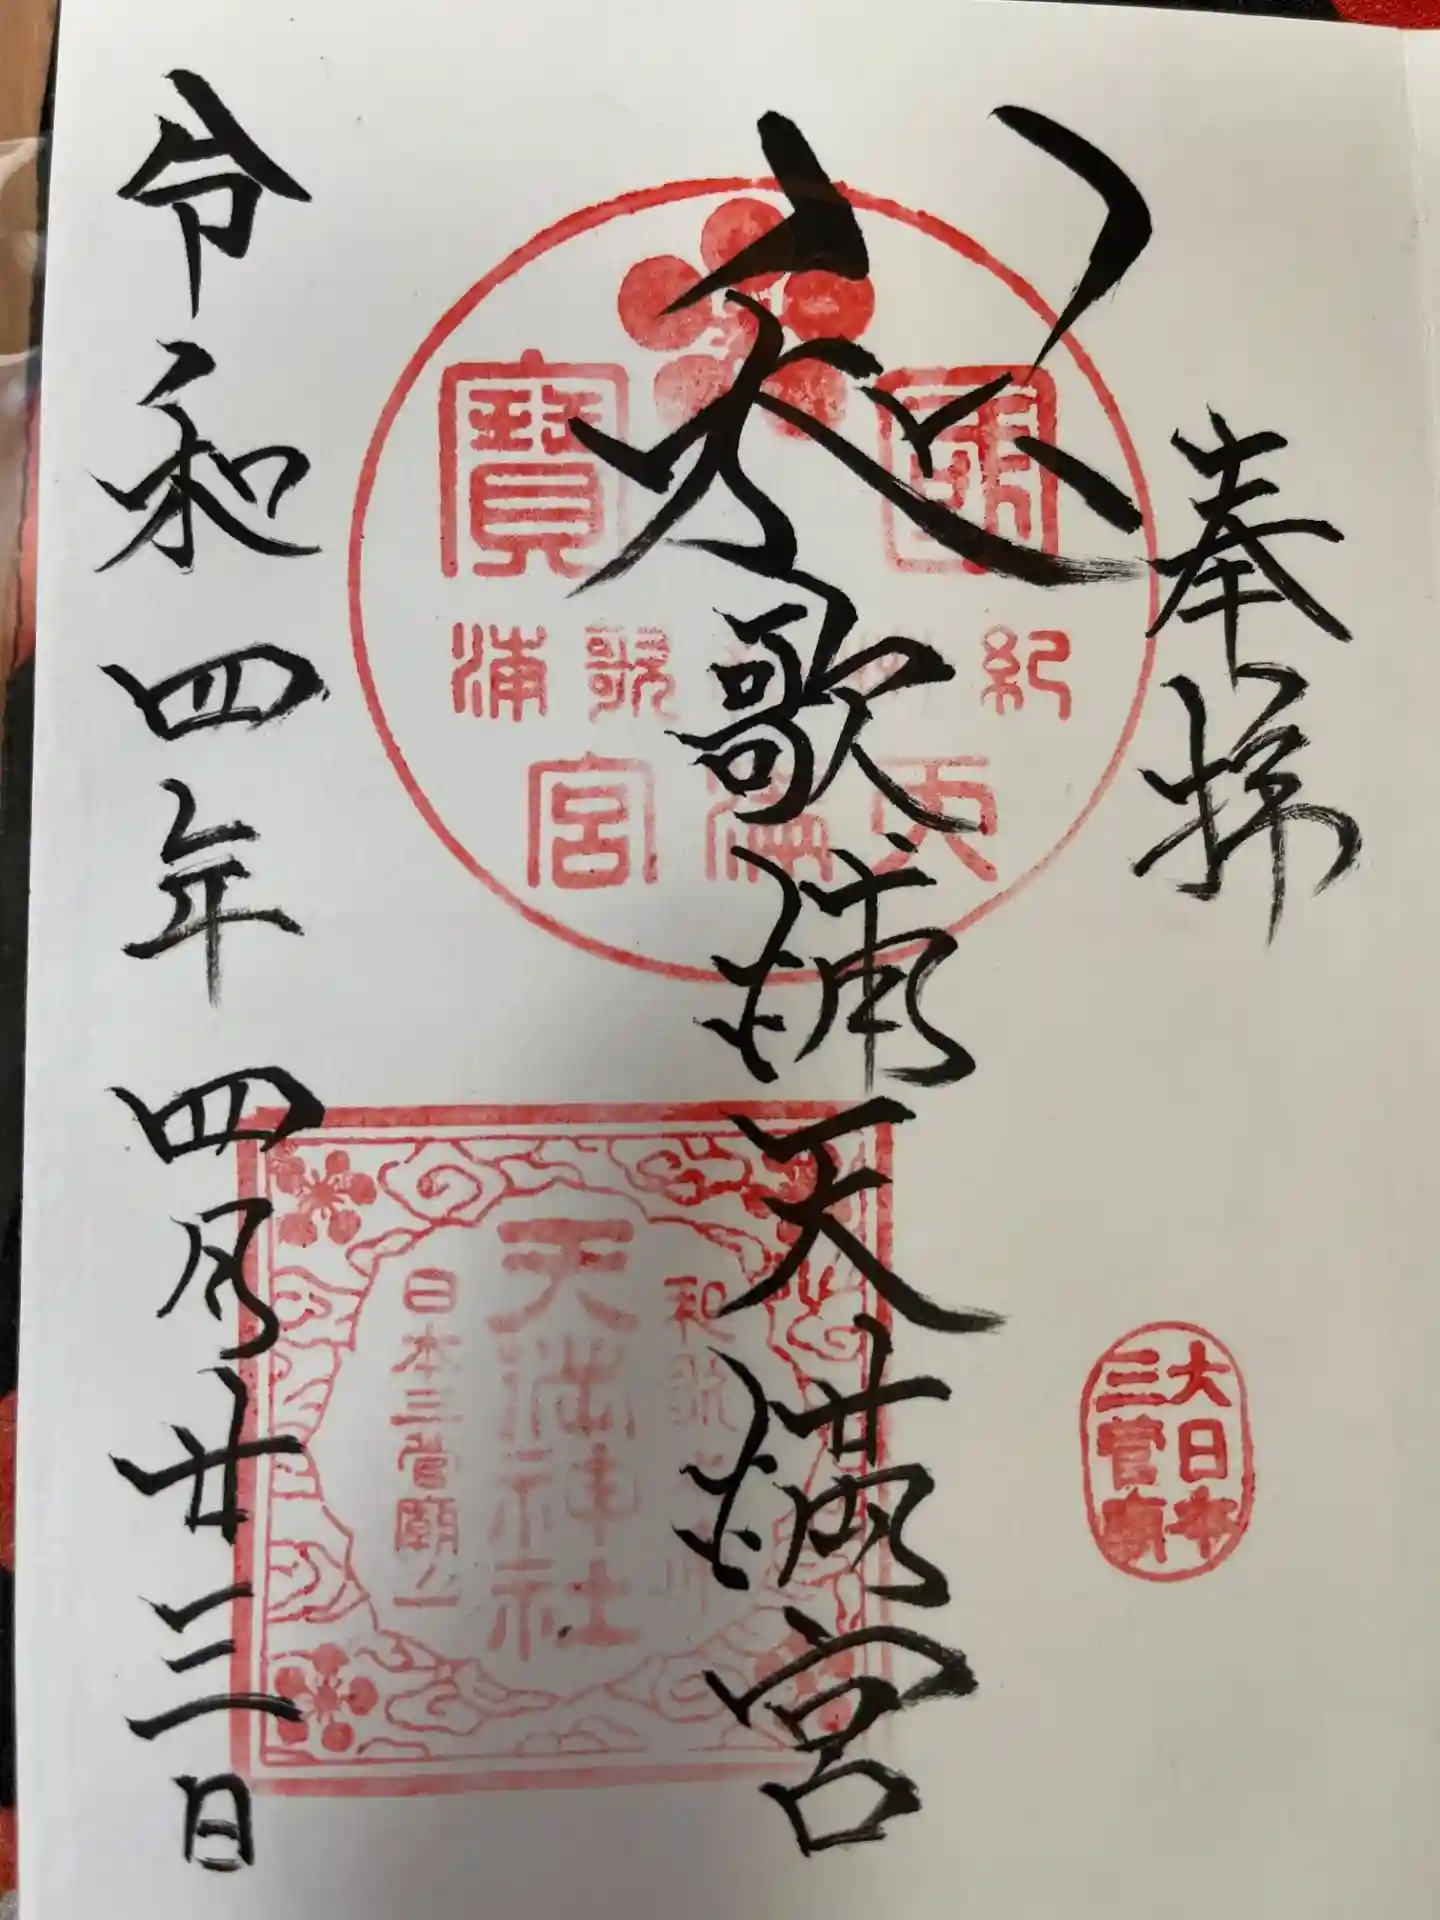 奉拝
大日本
三菅廟
和歌浦天満宮
國寶
紀州和歌浦
天満宮
和歌
天満神社
日本三菅廟之一
令和四年四月廿三日